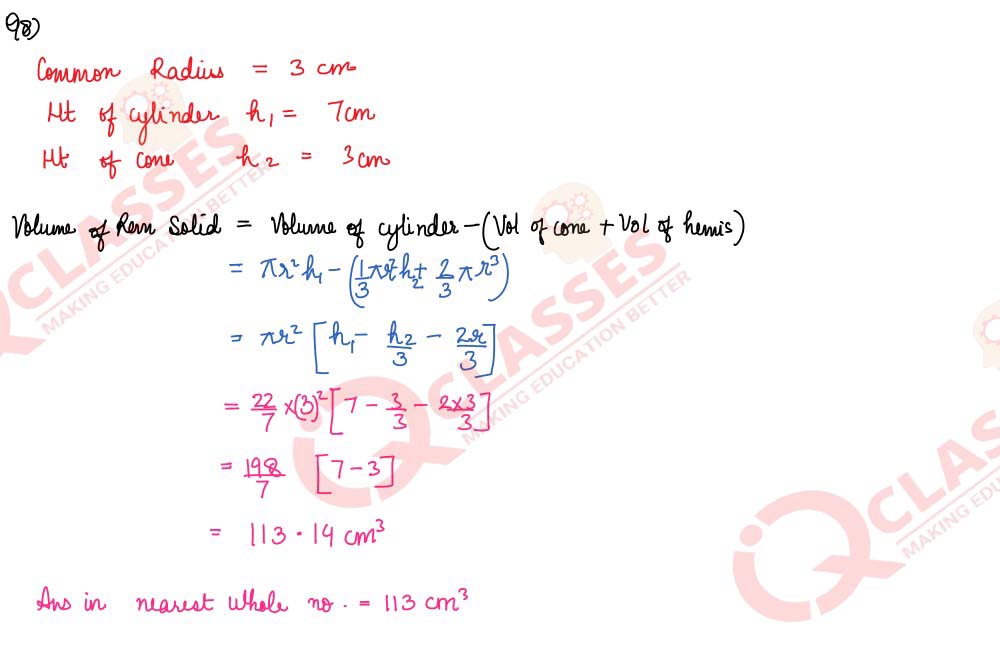 Q8)
Common Radius = 3 cm
Ht of cylinder h₁ = 7cm
Ht of cone h₂ = 3cm
Volume of Rem Solid = Volume of cylinder - (Vol of cone + Vol of hemis)
= πr²h₁ - (1/3 πr²h₂ + 2/3 πr³)
= πr² [h₁ - h₂/3 - 2r/3]
= 22/7 × (3)² [7 - 3/3 - 2×3/3]
= 198/7 [7 - 3]
= 113.14 cm³
Ans in nearest whole no. = 113 cm³
CLASSES
MAKING EDUCATION BETTER
IQ CLASSES
MAKING EDUCATION BETTER
IQ CLASSES
MAKING EDUCATION BETTER